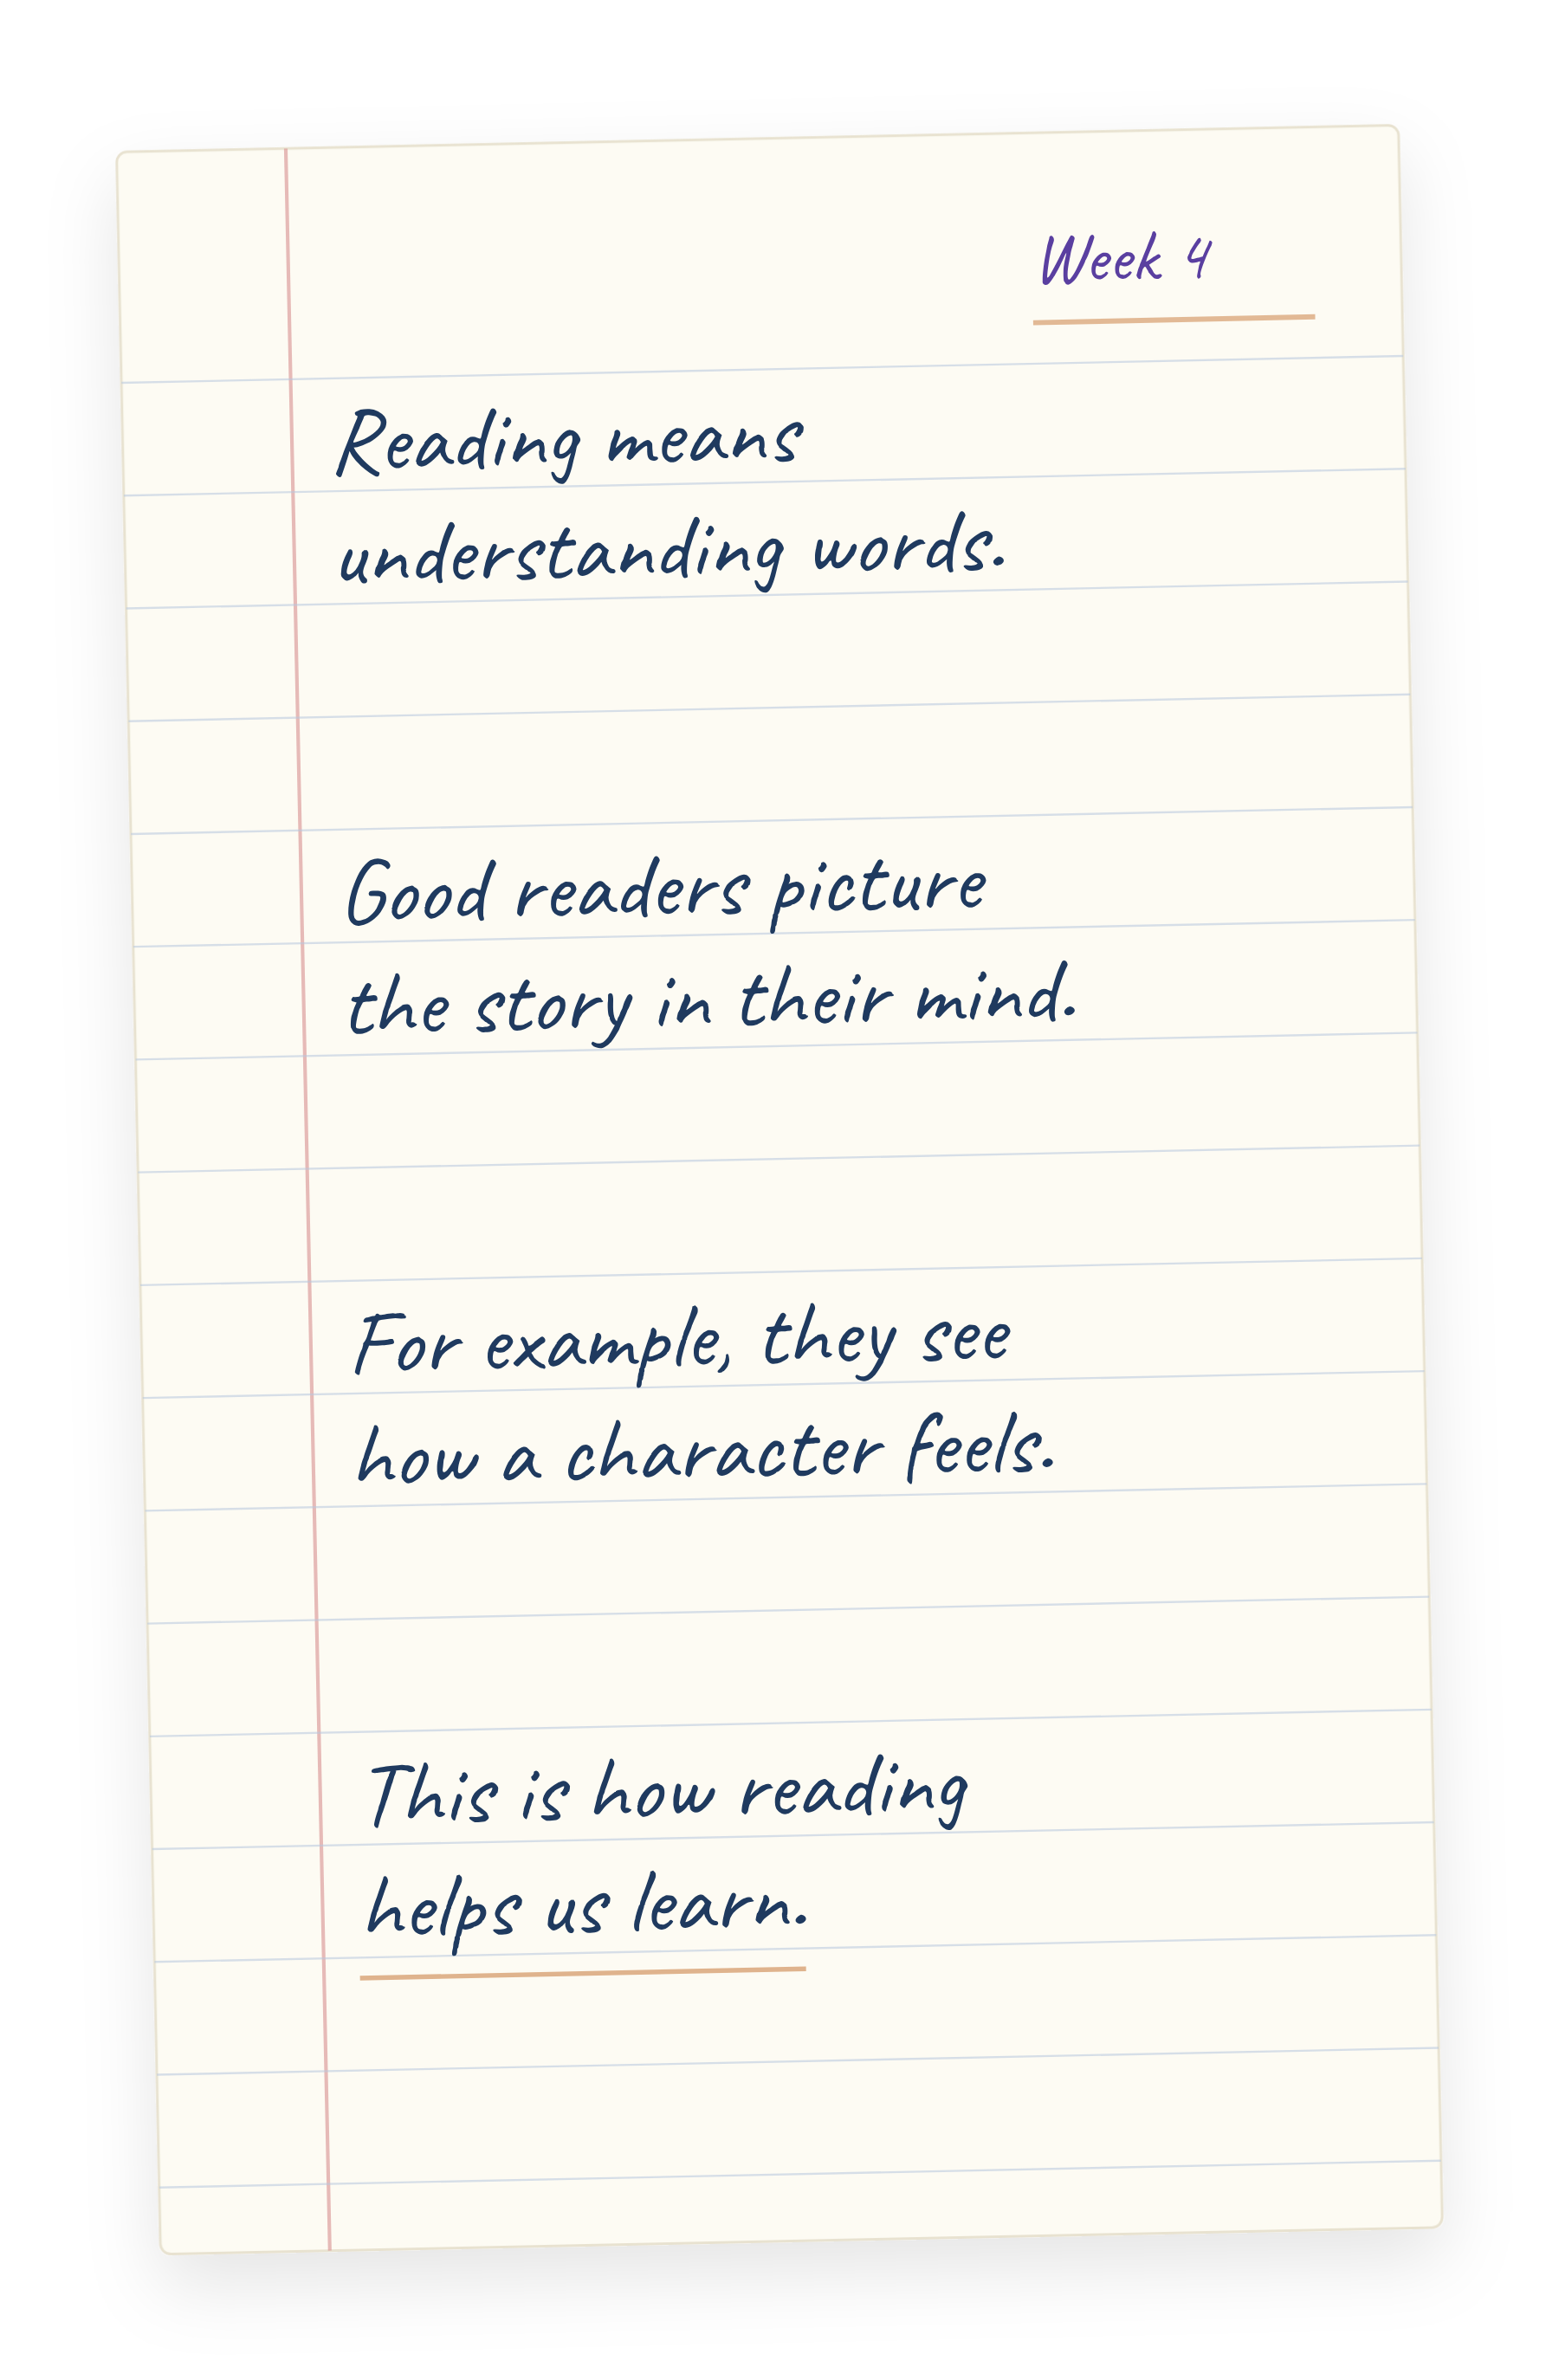 Week 4
Reading means
understanding words.
Good readers picture
the story in their mind.
For example, they see
how a character feels.
This is how reading
helps us learn.